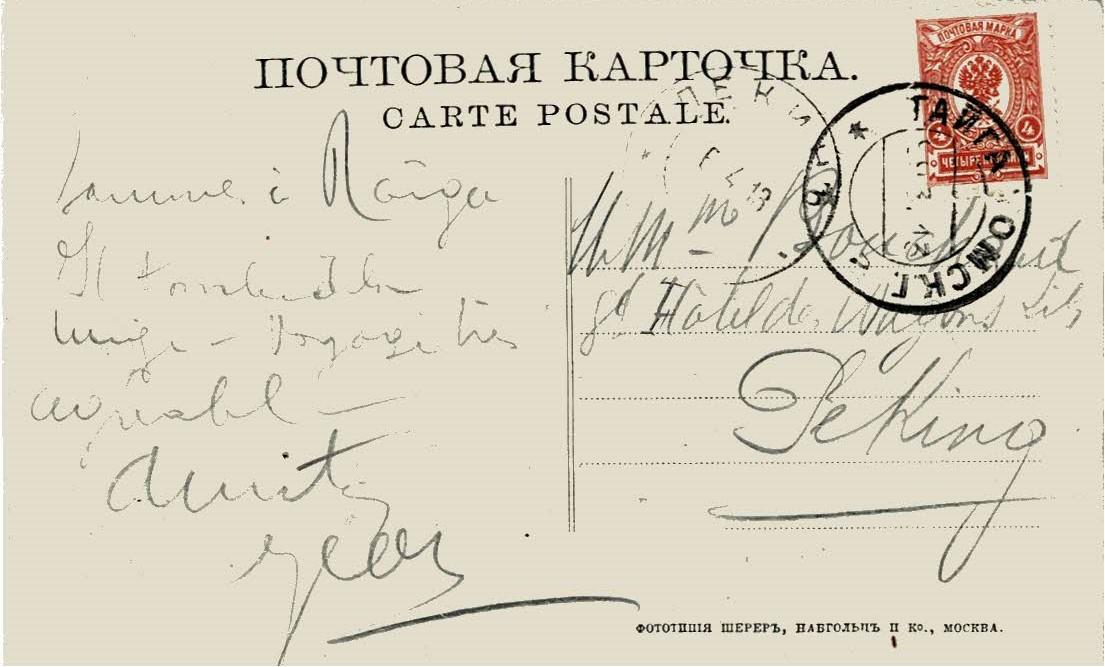 ПОЧТОВАЯ КАРТОЧКА.
CARTE POSTALE.
ПОЧТОВАЯ МАРКА
4 4
ЧЕТЫРЕ
ТАЙГА ТОМСК.Г.
ПЕКИНЪ
Sommes à Taïga
Il tombe de la
neige – Voyage très
agréable –
Amitiés
Hôtel des Wagons Lits
Peking
ФОТОТИПІЯ ШЕРЕРЪ, НАБГОЛЬЦЪ И Ко., МОСКВА.